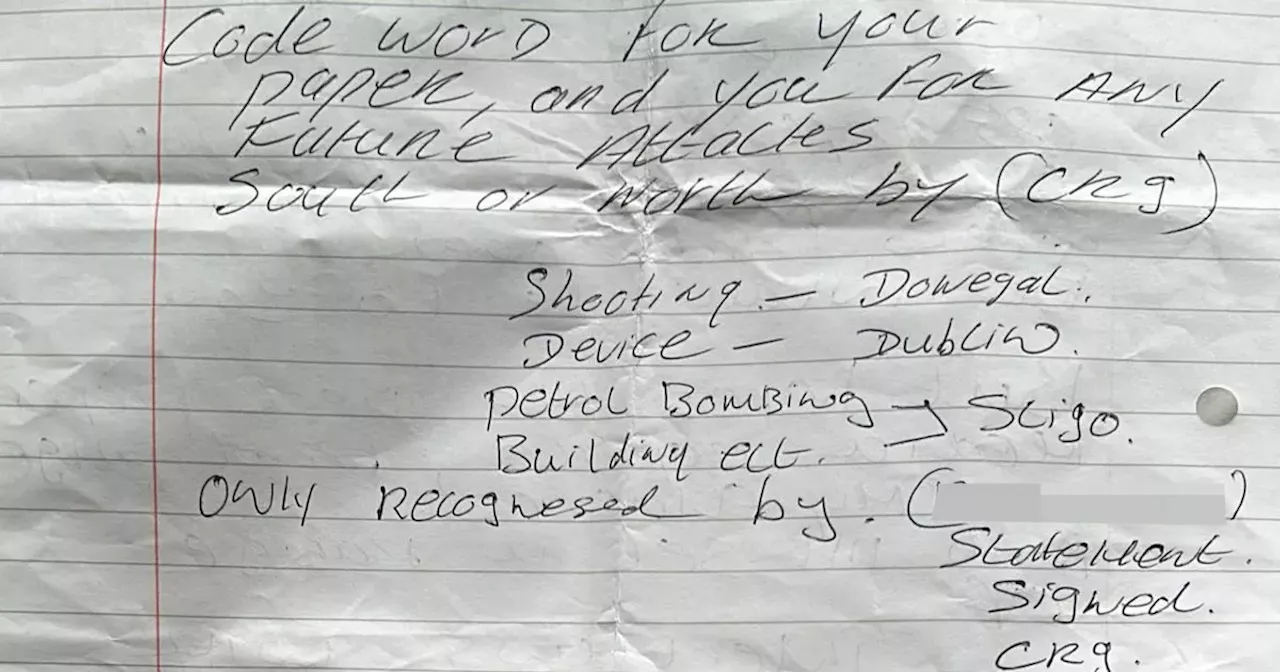 Code word for your
paper, and you for Any
Future Attactes
South or North by (CRg)
Shooting – Donegal.
Device – Dublin.
petrol Bombing
Building ect. → Sligo.
Only recognesed by. (
)
Statement.
Signed.
CRg.